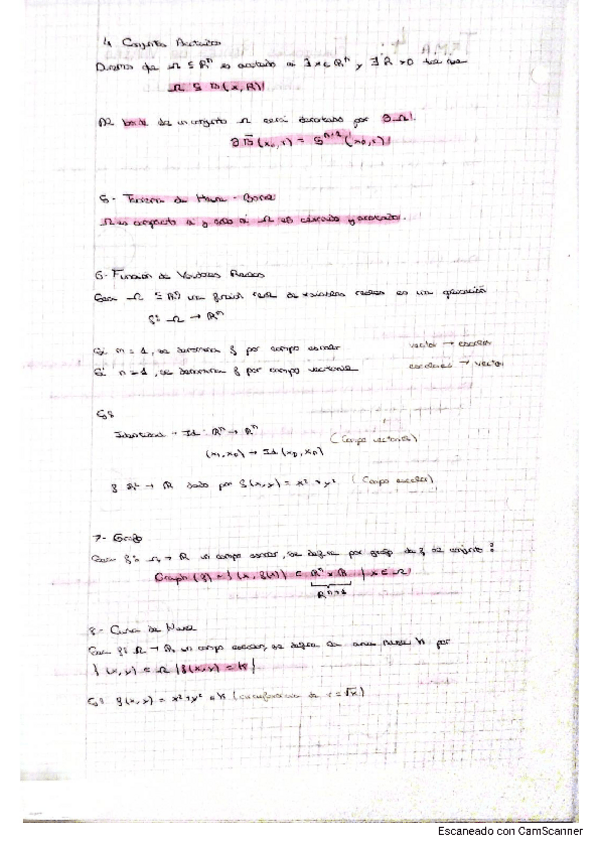 4 Conjuntos Acotados
Diremos que Ω ⊆ ℝⁿ es acotado si ∃ x ∈ ℝⁿ y ∃ R > 0 tal que
Ω ⊆ B(x, R)
de un conjunto Ω será denotado por ∂Ω
∂B̄(x₀, r) = Sⁿ⁻¹(x₀, r)
5- Teorema de Heine-Borel
Ω es compacto si y solo si Ω es cerrado y acotado.
6- Función de Variables Reales
Sea Ω ⊆ ℝⁿ una función de variables reales es una
f: Ω → ℝⁿ
Si m = 1, se denomina f por campo escalar vector → escalar
Si n = 1, se denomina f por campo vectorial escalares → vector
Identidad → Id: ℝⁿ → ℝⁿ (Campo vectorial)
f ℝ² → ℝ dado por f(x,y) = x² + y² (Campo escalar)
7- Grafo
Sea f: Ω → ℝ un campo escalar, se define por grafo de f de conjunto:
Graph(f) = {(x, f(x)) ∈ ℝⁿ x ℝ | x ∈ Ω}
ℝⁿ⁺¹
8- Curva de Nivel
Sea f: Ω → ℝ, un campo escalar, se define de curva nivel K por
{(x,y) ∈ Ω | f(x,y) = K}
f(x,y) = x² + y² = K (circunferencia de r = √K)
Escaneado con CamScanner